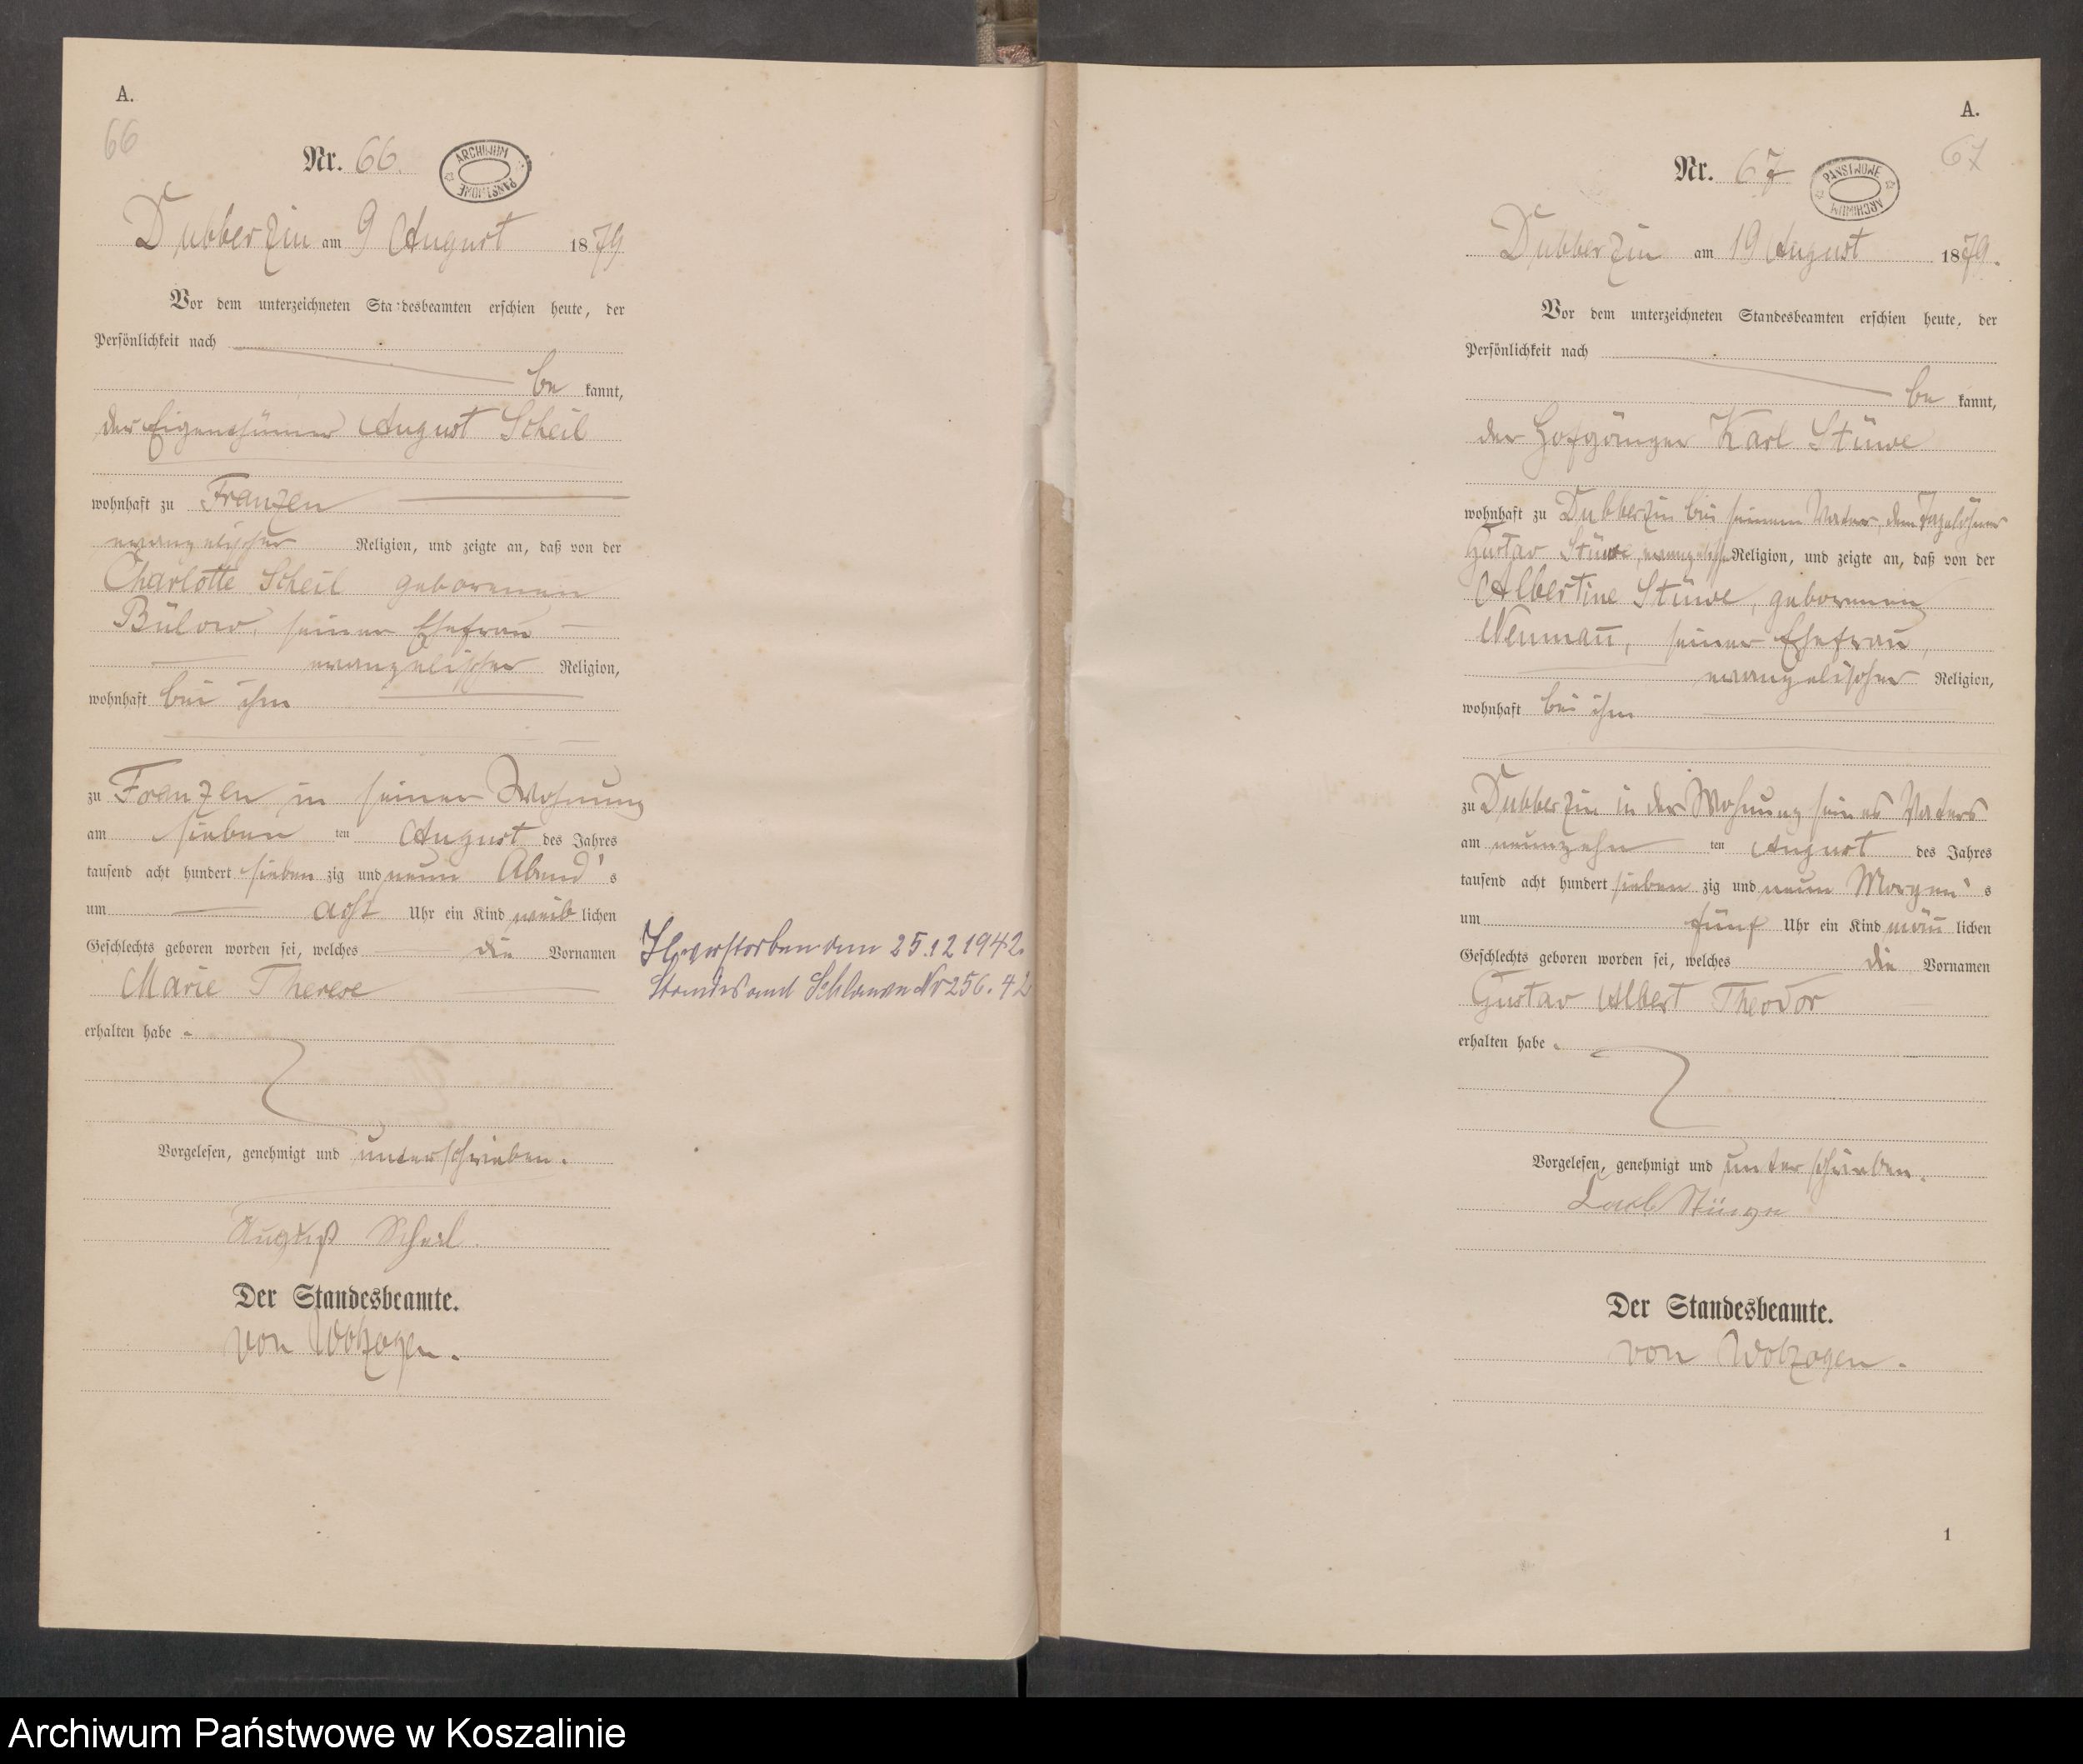 A.
66
Nr. 66.
ARCHIWUM PAŃSTWOWE
Dubberzin am 9 August 1879
Vor dem unterzeichneten Standesbeamten erschien heute, der
Persönlichkeit nach
be kannt,
der Eigenthümer August Scheil
wohnhaft zu Franzen
evangelischer Religion, und zeigte an, daß von der
Charlotte Scheil geborenen
Bülow, seiner Ehefrau
evangelischer Religion,
wohnhaft bei ihm
zu Franzen in seiner Wohnung
am sieben ten August des Jahres
tausend acht hundert sieben zig und neun Abend's
um acht Uhr ein Kind weib lichen
Geschlechts geboren worden sei, welches die Vornamen
Marie Therese
erhalten habe.
Vorgelesen, genehmigt und unterschrieben.
August Scheil.
Der Standesbeamte.
von Wolzogen.
verstorben am 25.12.1942.
Standesamt Schlawe Nr 256.42
A.
67
Nr. 67
PAŃSTWOWE ARCHIWUM
Dubberzin am 19 August 1879.
Vor dem unterzeichneten Standesbeamten erschien heute, der
Persönlichkeit nach
be kannt,
der Hofgänger Karl Stüwe
wohnhaft zu Dubberzin bei seinem Vater, dem Tagelöhner
Gustav Stüwe, evangelischer Religion, und zeigte an, daß von der
Albertine Stüwe, geborenen
Neumañ, seiner Ehefrau,
evangelischer Religion,
wohnhaft bei ihm
zu Dubberzin in der Wohnung seines Vaters
am neunzehn ten August des Jahres
tausend acht hundert sieben zig und neun Morgen's
um fünf Uhr ein Kind mäñ lichen
Geschlechts geboren worden sei, welches die Vornamen
Gustav Albert Theodor
erhalten habe.
Vorgelesen, genehmigt und unterschrieben.
Karl Stüwe
Der Standesbeamte.
von Wolzogen.
1
Archiwum Państwowe w Koszalinie